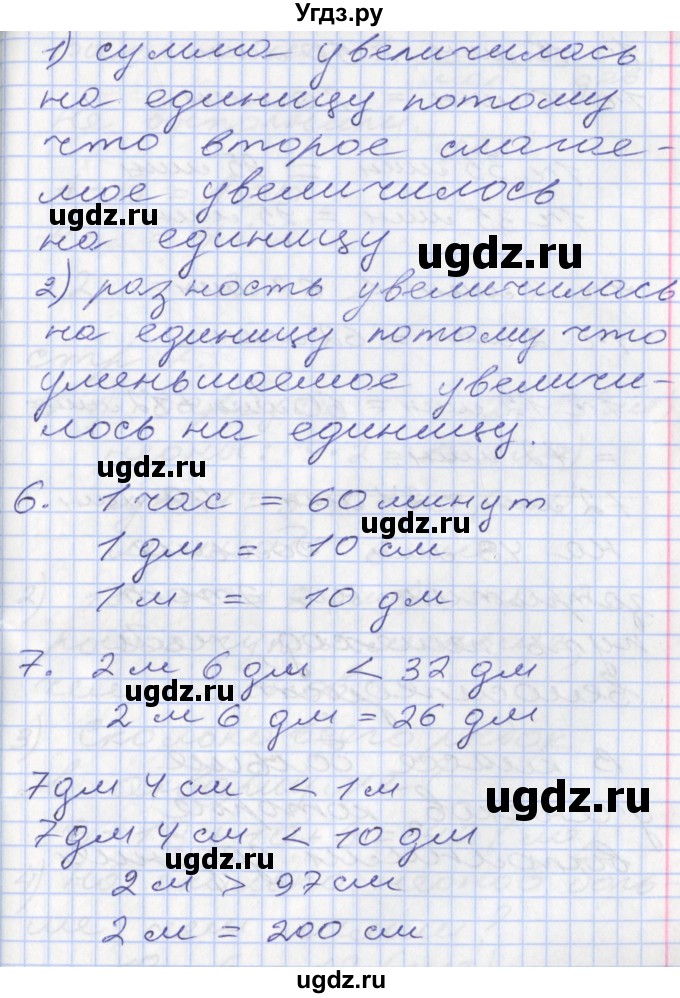 Угдз.ру
1) сумма увеличилась
на единицу потому
что второе слагае-
мое увеличилось
на единицу
2) разность увеличилась
на единицу потому что
уменьшаемое увеличи-
лось на единицу.
6. 1 час = 60 минут
1 дм = 10 см
1 м = 10 дм
7. 2 м 6 дм < 32 дм
2 м 6 дм = 26 дм
7 дм 4 см < 1 м
7 дм 4 см < 10 дм
2 м > 97 см
2 м = 200 см
ugdz.ru
ugdz.ru
ugdz.ru
ugdz.ru
ugdz.ru
ugdz.ru
ugdz.ru
ugdz.ru
ugdz.ru